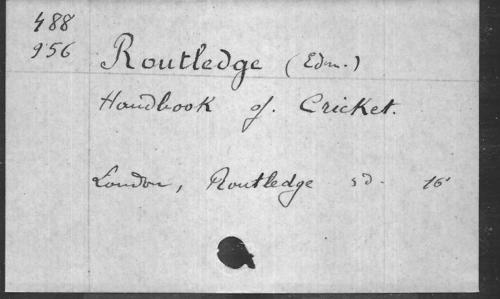 488
956
Routledge (Edm.)
Handbook of. Cricket.
London, Routledge sd. 16°